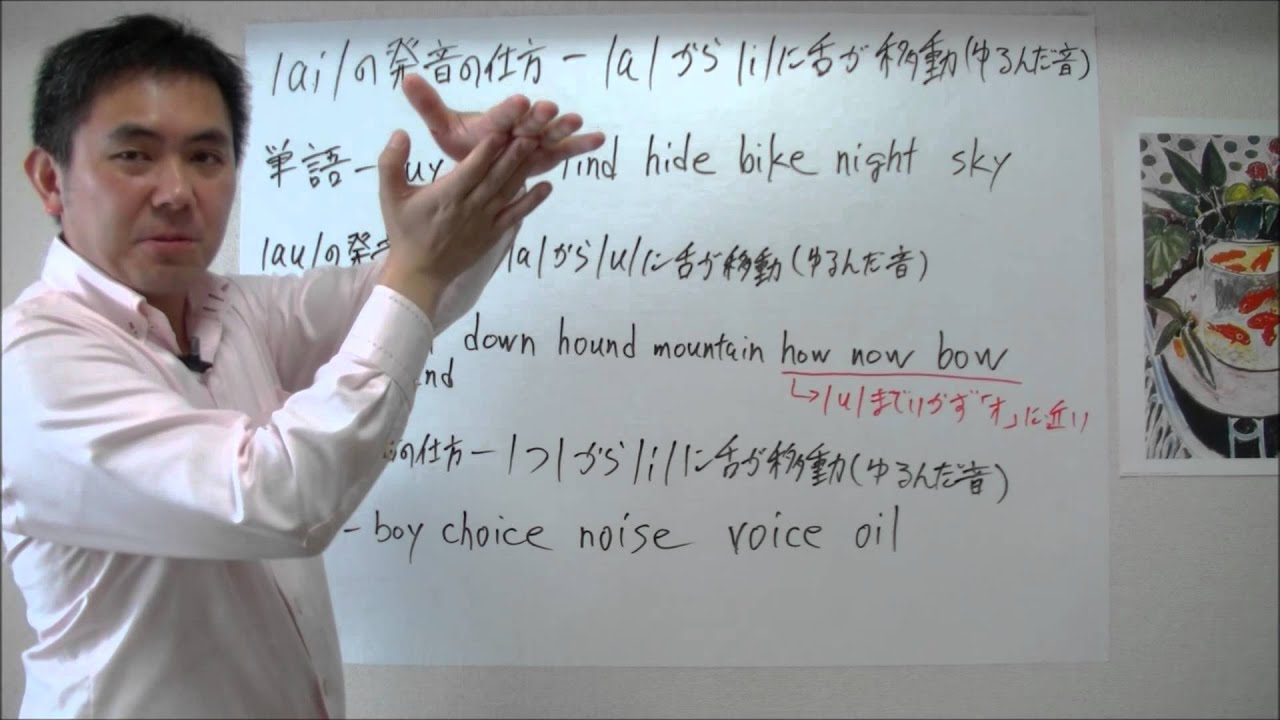 /ai/の発音の仕方 — /a/から/i/に舌が移動(ゆるんだ音)
単語 — uy ind hide bike night sky
/au/の発音 /a/から/u/に舌が移動(ゆるんだ音)
down hound mountain how now bow
nd
↳ /u/までいかず「オ」に近い
の仕方 — /ɔ/から/i/に舌が移動(ゆるんだ音)
— boy choice noise voice oil